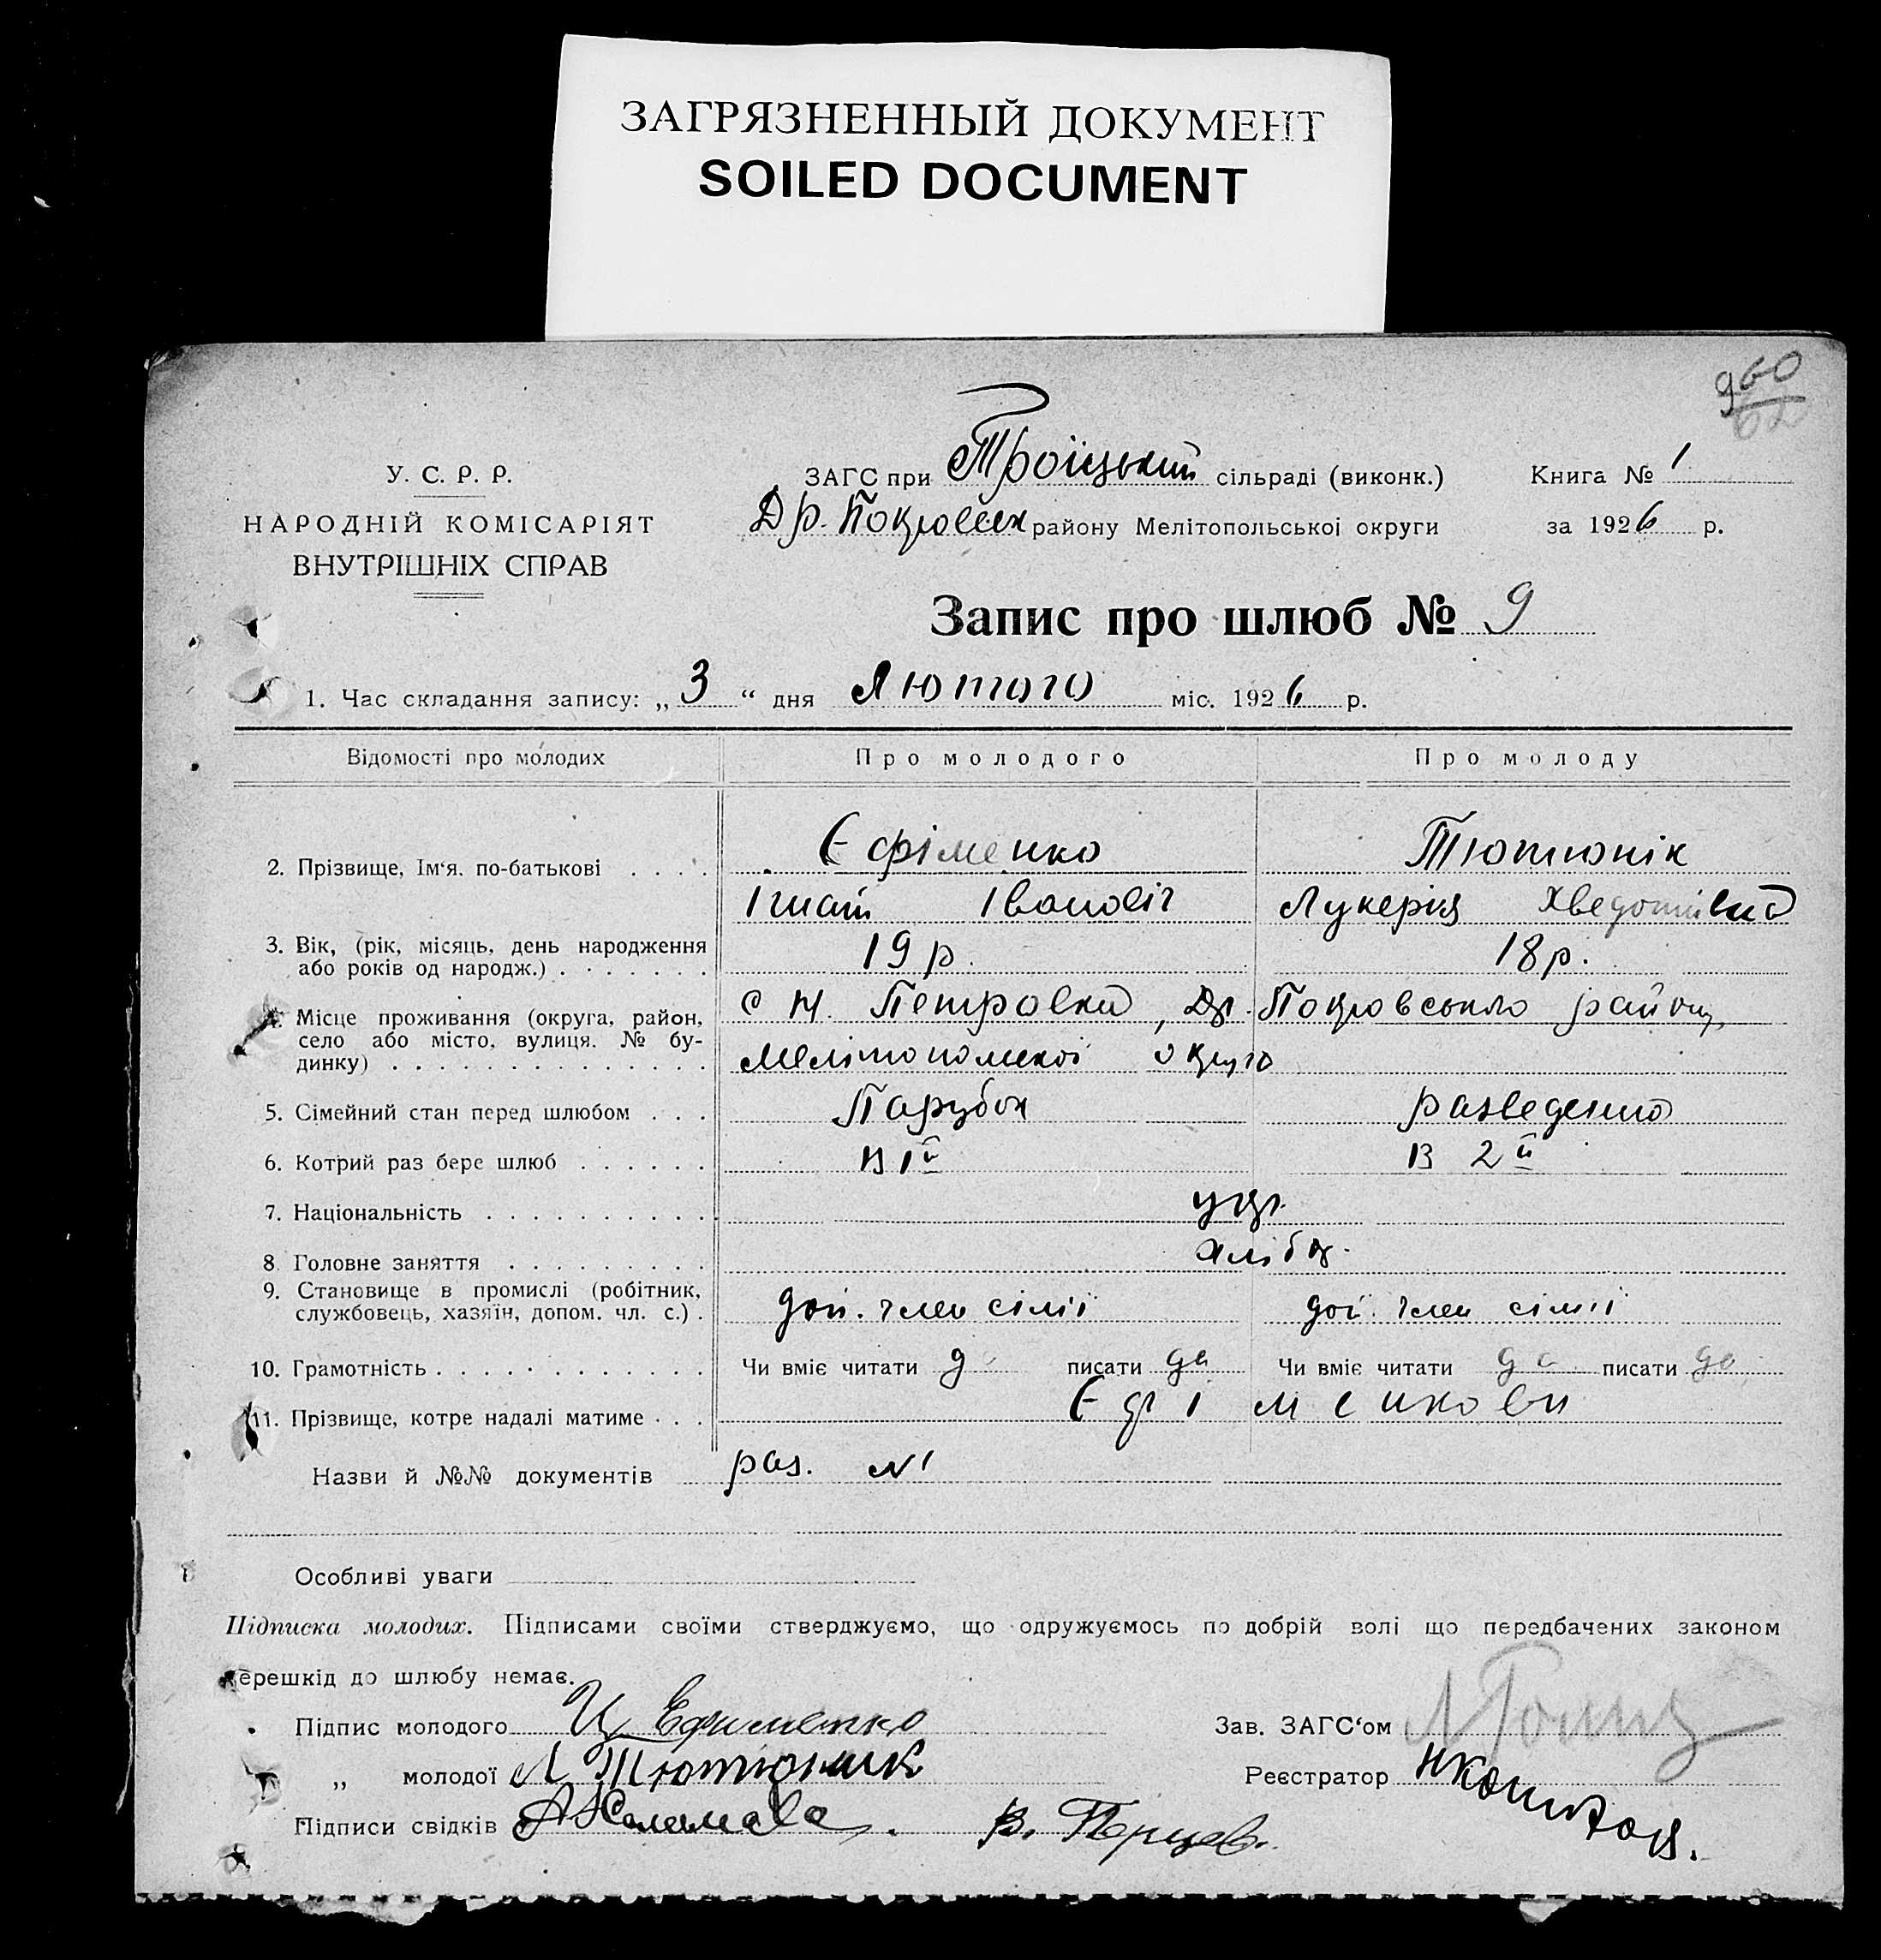 ЗАГРЯЗНЕННЫЙ ДОКУМЕНТ
SOILED DOCUMENT
960
62
У. С. Р. Р.
НАРОДНІЙ КОМІСАРІЯТ
ВНУТРІШНІХ СПРАВ
ЗАГС при Троїцький сільраді (виконк.)
Книга № 1
Др. Покровськ району Мелітопольської округи
за 1926 р.
Запис про шлюб № 9
1. Час складання запису: „3“ дня Лютого міс. 1926 р.
Відомості про молодих Про молодого Про молоду
2. Прізвище, Ім‘я. по-батькові . . . . Єфіменко Тютюнік
Ігнат Іванович Лукерія Хведотівна
3. Вік, (рік, місяць, день народження
або років од народж.) . . . . . . . 19 р. 18 р.
Місце проживання (округа, район,
село або місто, вулиця. № бу-
динку) . . . . . . . . . . . . . .
с Н. Петровка, Др. Покровського району,
Мелітопольської округи
5. Сімейний стан перед шлюбом . . . Парубок разведена
6. Котрий раз бере шлюб . . . . . . В 1й В 2й
7. Національність . . . . . . . . . . укр.
8. Головне заняття . . . . . . . . . хліб.
9. Становище в промислі (робітник,
службовець, хазяїн, допом. чл. с.) . доп. член сімії доп. член сімії
10. Грамотність . . . . . . . . . . . . Чи вміє читати да писати да Чи вміє читати да писати да
11. Прізвище, котре надалі матиме . . . Єфіменкови
Назви й №№ документів раз. №1
Особливі уваги
Підписка молодих. Підписами своїми стверджуємо, що одружуємось по добрій волі що передбачених законом
перешкід до шлюбу немає.
Підпис молодого И Ефименко Зав. ЗАГС‘ом
„ молодої Л Тютюник Реєстратор
Підписи свідків В. Перцев.